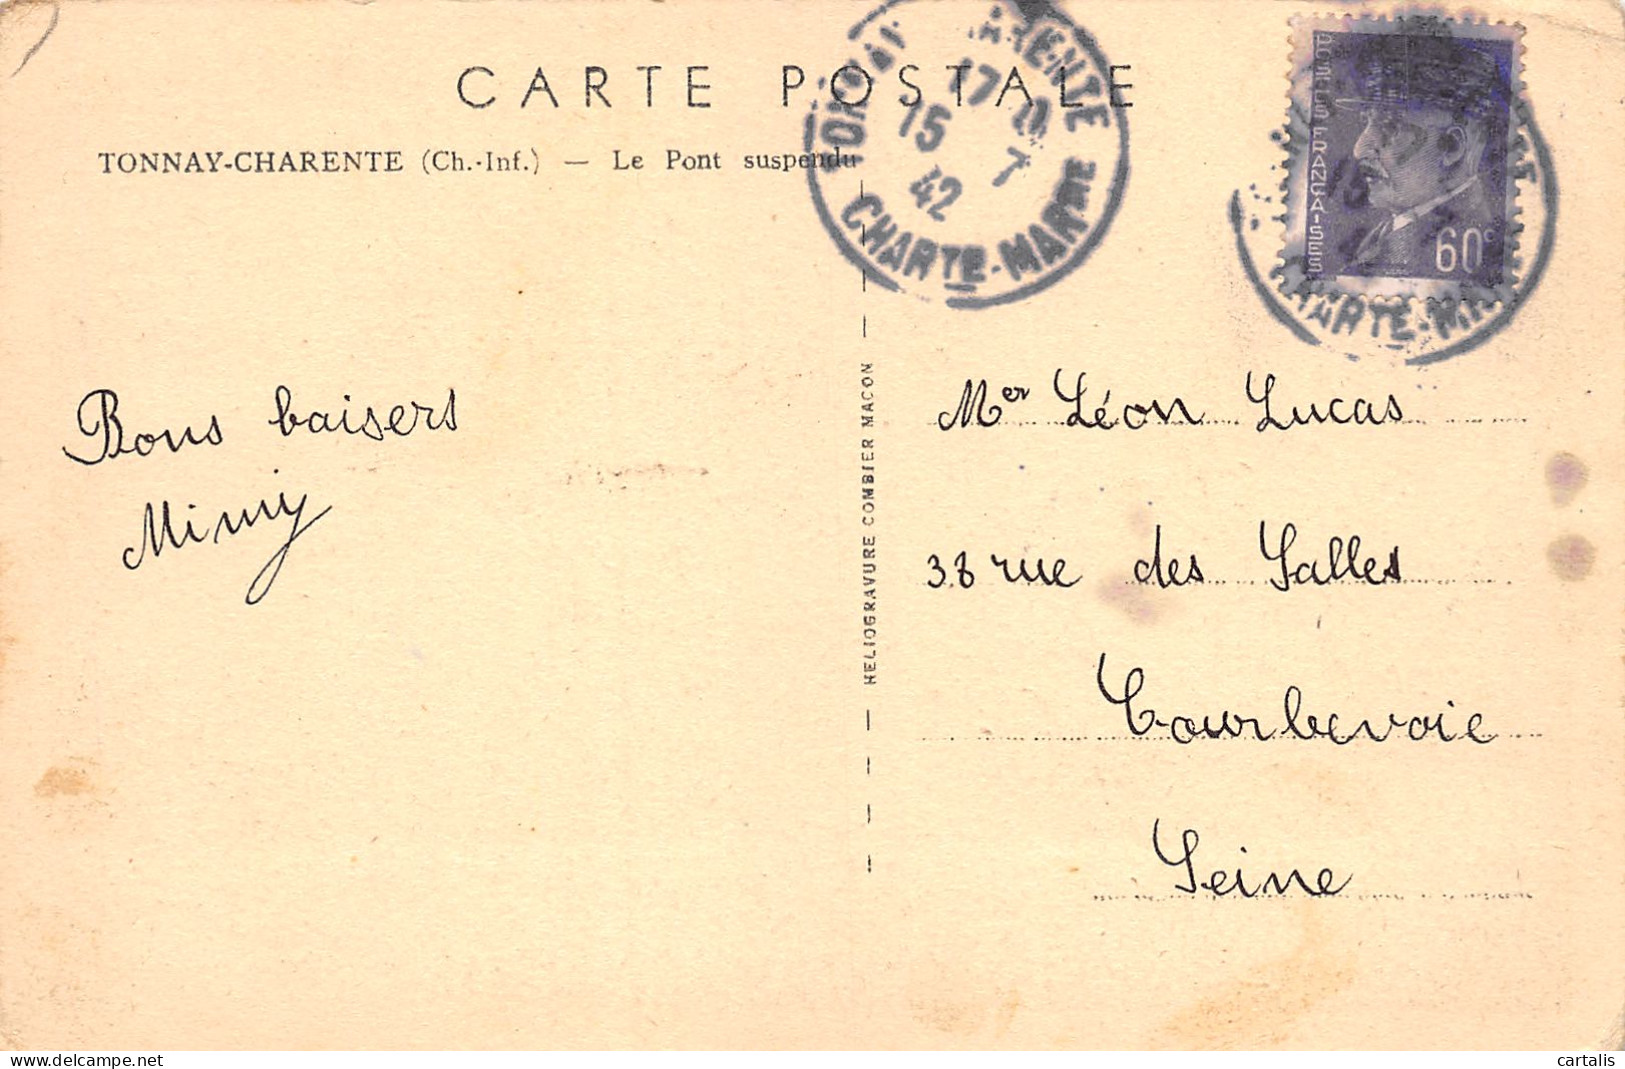 CARTE POSTALE
TONNAY-CHARENTE (Ch.-Inf.) — Le Pont suspendu
TONNAY CHARENTE
17
15 7
42
CHARTE-MARME
POSTES FRANÇAISES
60c
CHARTE-MAR
Bons baisers
Mimy
HELIOGRAVURE COMBIER MACON
Mer Léon Lucas
38 rue des Salles
Courbevoie
Seine
delcampe.net
cartalis